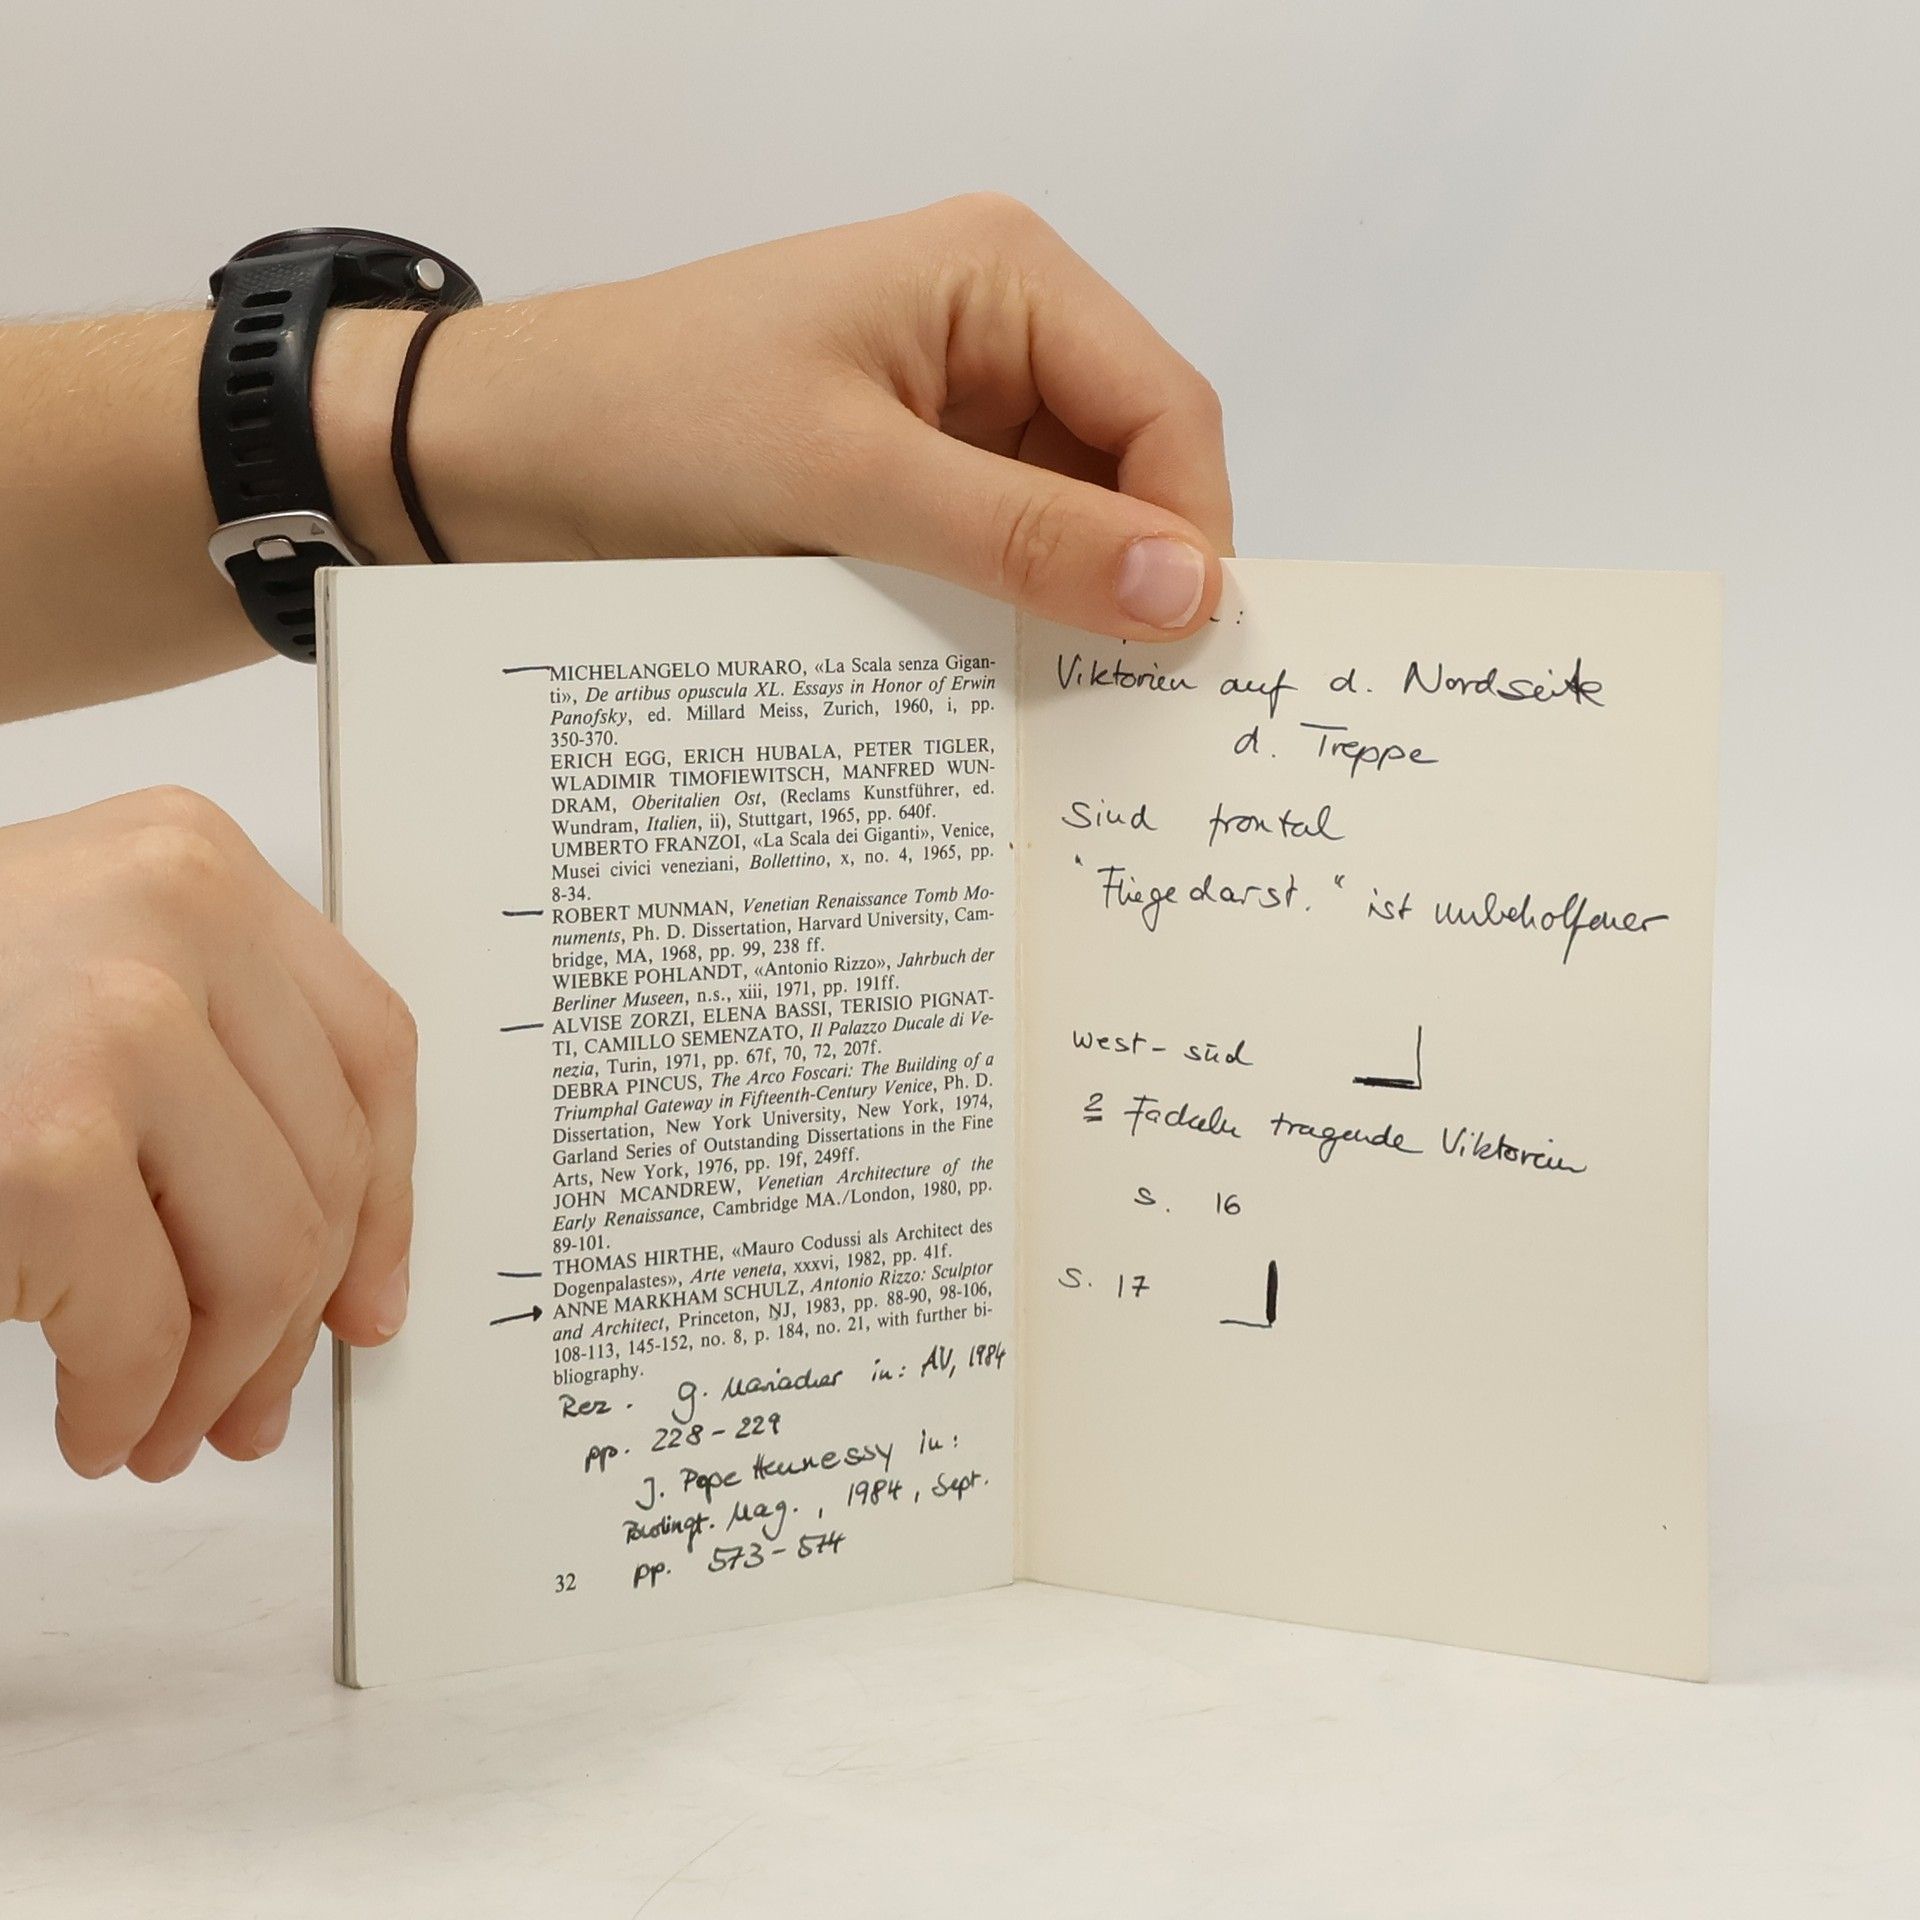 MICHELANGELO MURARO, «La Scala senza Gigan-
ti», De artibus opuscula XL. Essays in Honor of Erwin
Panofsky, ed. Millard Meiss, Zurich, 1960, i, pp.
350-370.
ERICH EGG, ERICH HUBALA, PETER TIGLER,
WLADIMIR TIMOFIEWITSCH, MANFRED WUN-
DRAM, Oberitalien Ost, (Reclams Kunstführer, ed.
Wundram, Italien, ii), Stuttgart, 1965, pp. 640f.
UMBERTO FRANZOI, «La Scala dei Giganti», Venice,
Musei civici veneziani, Bollettino, x, no. 4, 1965, pp.
8-34.
ROBERT MUNMAN, Venetian Renaissance Tomb Mo-
numents, Ph. D. Dissertation, Harvard University, Cam-
bridge, MA, 1968, pp. 99, 238 ff.
WIEBKE POHLANDT, «Antonio Rizzo», Jahrbuch der
Berliner Museen, n.s., xiii, 1971, pp. 191ff.
ALVISE ZORZI, ELENA BASSI, TERISIO PIGNAT-
TI, CAMILLO SEMENZATO, Il Palazzo Ducale di Ve-
nezia, Turin, 1971, pp. 67f, 70, 72, 207f.
DEBRA PINCUS, The Arco Foscari: The Building of a
Triumphal Gateway in Fifteenth-Century Venice, Ph. D.
Dissertation, New York University, New York, 1974,
Garland Series of Outstanding Dissertations in the Fine
Arts, New York, 1976, pp. 19f, 249ff.
JOHN MCANDREW, Venetian Architecture of the
Early Renaissance, Cambridge MA./London, 1980, pp.
89-101.
THOMAS HIRTHE, «Mauro Codussi als Architect des
Dogenpalastes», Arte veneta, xxxvi, 1982, pp. 41f.
ANNE MARKHAM SCHULZ, Antonio Rizzo: Sculptor
and Architect, Princeton, NJ, 1983, pp. 88-90, 98-106,
108-113, 145-152, no. 8, p. 184, no. 21, with further bi-
bliography.
Rez. G. Mariacher in: AV, 1984
pp. 228-229
J. Pope Hennessy in:
Burlingt. Mag., 1984, Sept.
pp. 573-574
32
Viktorien auf d. Nordseite
d. Treppe
Sind frontal
"Fliegedarst." ist unbeholfener
west-süd
2 Fackeln tragende Viktorien
S. 16
S. 17